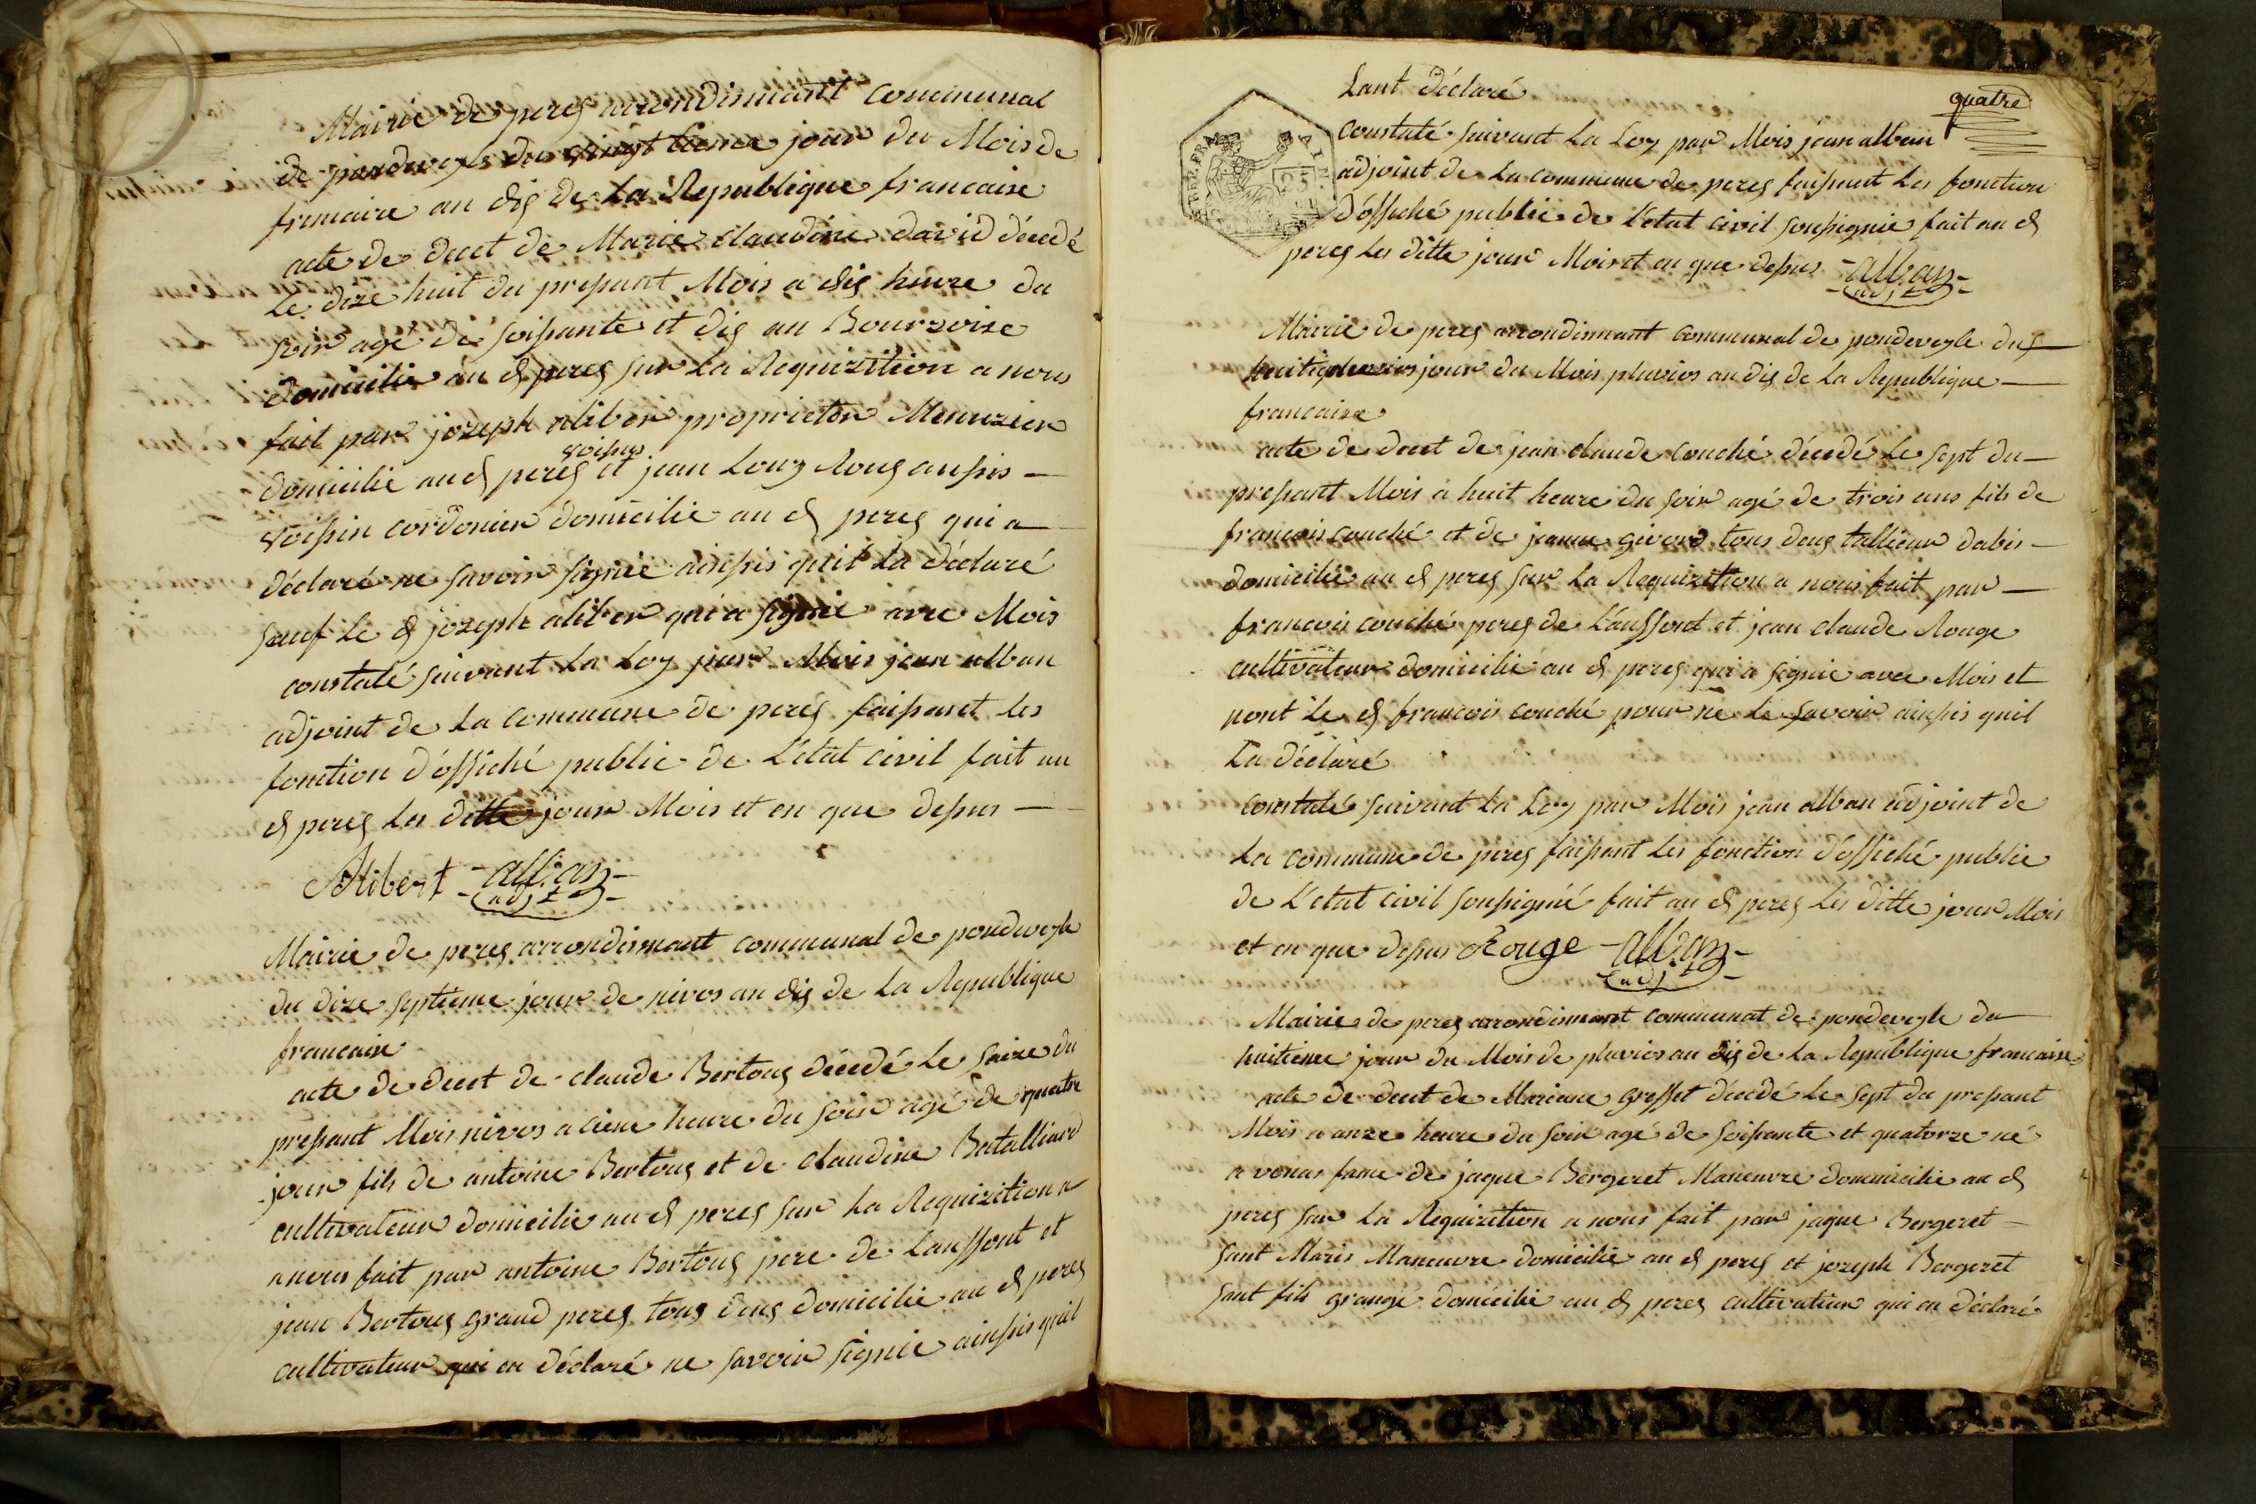 Mairie de perex arrondismant Communal
de pondevegle du vingtieme jour du Mois de
frimaire an dix de La Republique francaise
acte de decet de Marie claudine david décédé
Le dize huit du presant Mois a dix heure du
soir agé de soissante et dix an Bourzoize
domicilié au d perex sur La Requizition a nous
fait par jozeph aliber proprietér Menuzier
voisins
domicilié au d perex et jean Louy Roux aussis
voissin cordonier domicilié au d perex qui a
déclaré ne savoir signié ainssis quil La déclaré
sauf Le d jozeph aliber qui a signié avec Mois
constaté suivant La Loy par Mois jean alban
adjoint de La Commune de perex faissant les
fonction d'offiché public de L'état civil fait au
d perex Les ditte jour Mois et en que dessus
Alibert alban
adjt
Mairie de perex arrondismant communal de pondevegle
du dize septieme jour de nivos an dix de La Republique
francaise
acte de decet de claude Bertoux décédé Le saize du
pressant Mois nivos a ciene heure du soir agé de quatre
jour fils de antoine Bertoux et de claudine Batalliard
cultivateur domicilié au d perex sur La Requizition a
nous fait par antoine Bertoux pere de Lanffont et
jean Bertoux grand perex tous deux domicilié au d perex
cultivateur qui on déclaré ne savoir signié ainssis quil
Lant déclaré
quatre
constaté suivant La Loy par Mois jean alban
adjoint de La commune de perex faissant Les fonction
d'offiché public de L'état civil soussignié fait au d
perex Les ditte jour Mois et en que dessus alban
adjt
Mairie de perex arrondismant communal de pondevegle du
huitie jour du Mois pluvios an dix de La Republique
francaise
acte de decet de jean claude couché décédé Le sept du
pressant Mois a huit heure du soir agé de trois ans fils de
francois couché et de jeanne givord tous deux tallieur dabis
domicilié au d perex sur La Requizition a nous fait par
francois couché perex de Lanffont et jean claude Rouge
cultivateur domicilié au d perex qui a signié avec Mois et
nont Le d francois couché pour ne Le savoir ainssis quil
La déclaré
constaté suivant La Loy par Mois jean alban adjoint de
La commune de perex faissant Les fonction d'offiché public
de L'état civil soussigné fait au d perex Les ditte jour Mois
et en que dessus Rouge alban
adjt
Mairie de perex arrondismant communal de pondevegle du
huitieme jour du Mois de pluvios an dix de La Republique francaise
acte de decet de Mariane grosset décédé Le sept du pressant
Mois a onze heure du soir agé de soissante et quatorze né
a vonas fame de jaque Bergeret Maneuvre dommicilié au d
perex sur La Requizition a nous fait par jaque Bergeret
sont Maris Maneuvre domicilié au d perex et jozeph Bergeret
sont fils grangé domicilié au d perex cultivateur qui on déclaré